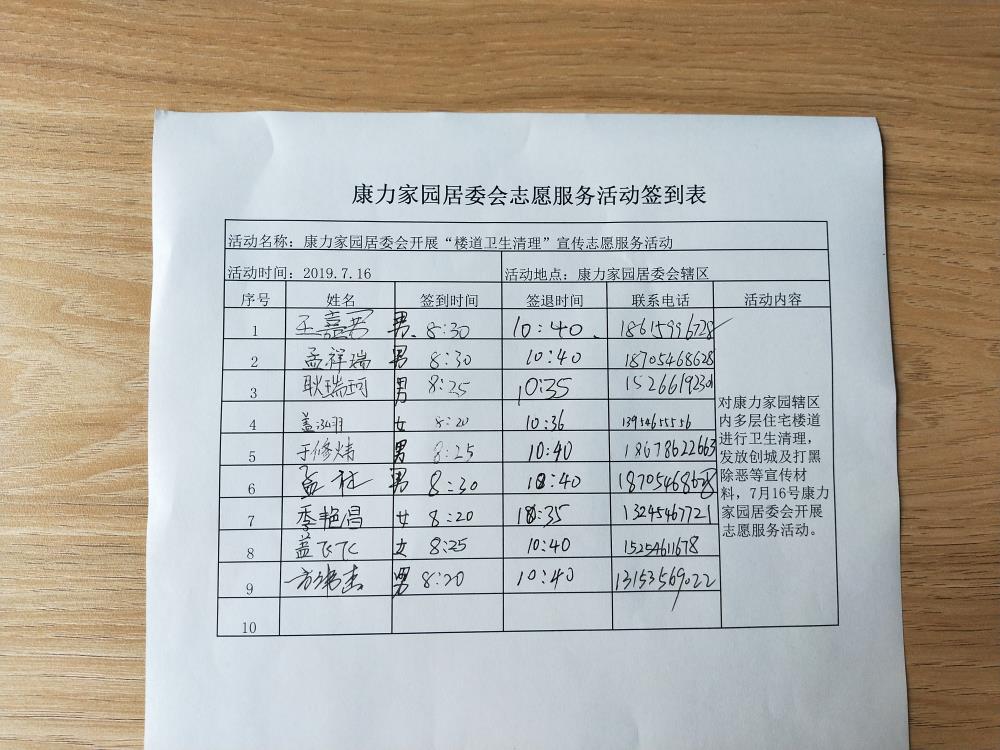 康力家园居委会志愿服务活动签到表
活动名称：康力家园居委会开展“楼道卫生清理”宣传志愿服务活动
活动时间：2019.7.16 活动地点：康力家园居委会辖区
序号 姓名 签到时间 签退时间 联系电话 活动内容
1 王嘉男 男 8:30 10:40 18615996728
2 孟祥瑞 男 8:30 10:40 18705468628
3 耿瑞珂 男 8:25 10:35 15266192301
4 盖 女 8:20 10:36 13954655556
5 于修 男 8:25 10:40 18678622663
6 孟 男 8:30 10:40
7 季艳昌 女 8:20 10:35 13245467721
8 盖飞飞 女 8:25 10:40 15254611678
9 方 男 8:20 10:40 13153569022
10
对康力家园辖区
内多层住宅楼道
进行卫生清理，
发放创城及打黑
除恶等宣传材
料，7月16号康力
家园居委会开展
志愿服务活动。